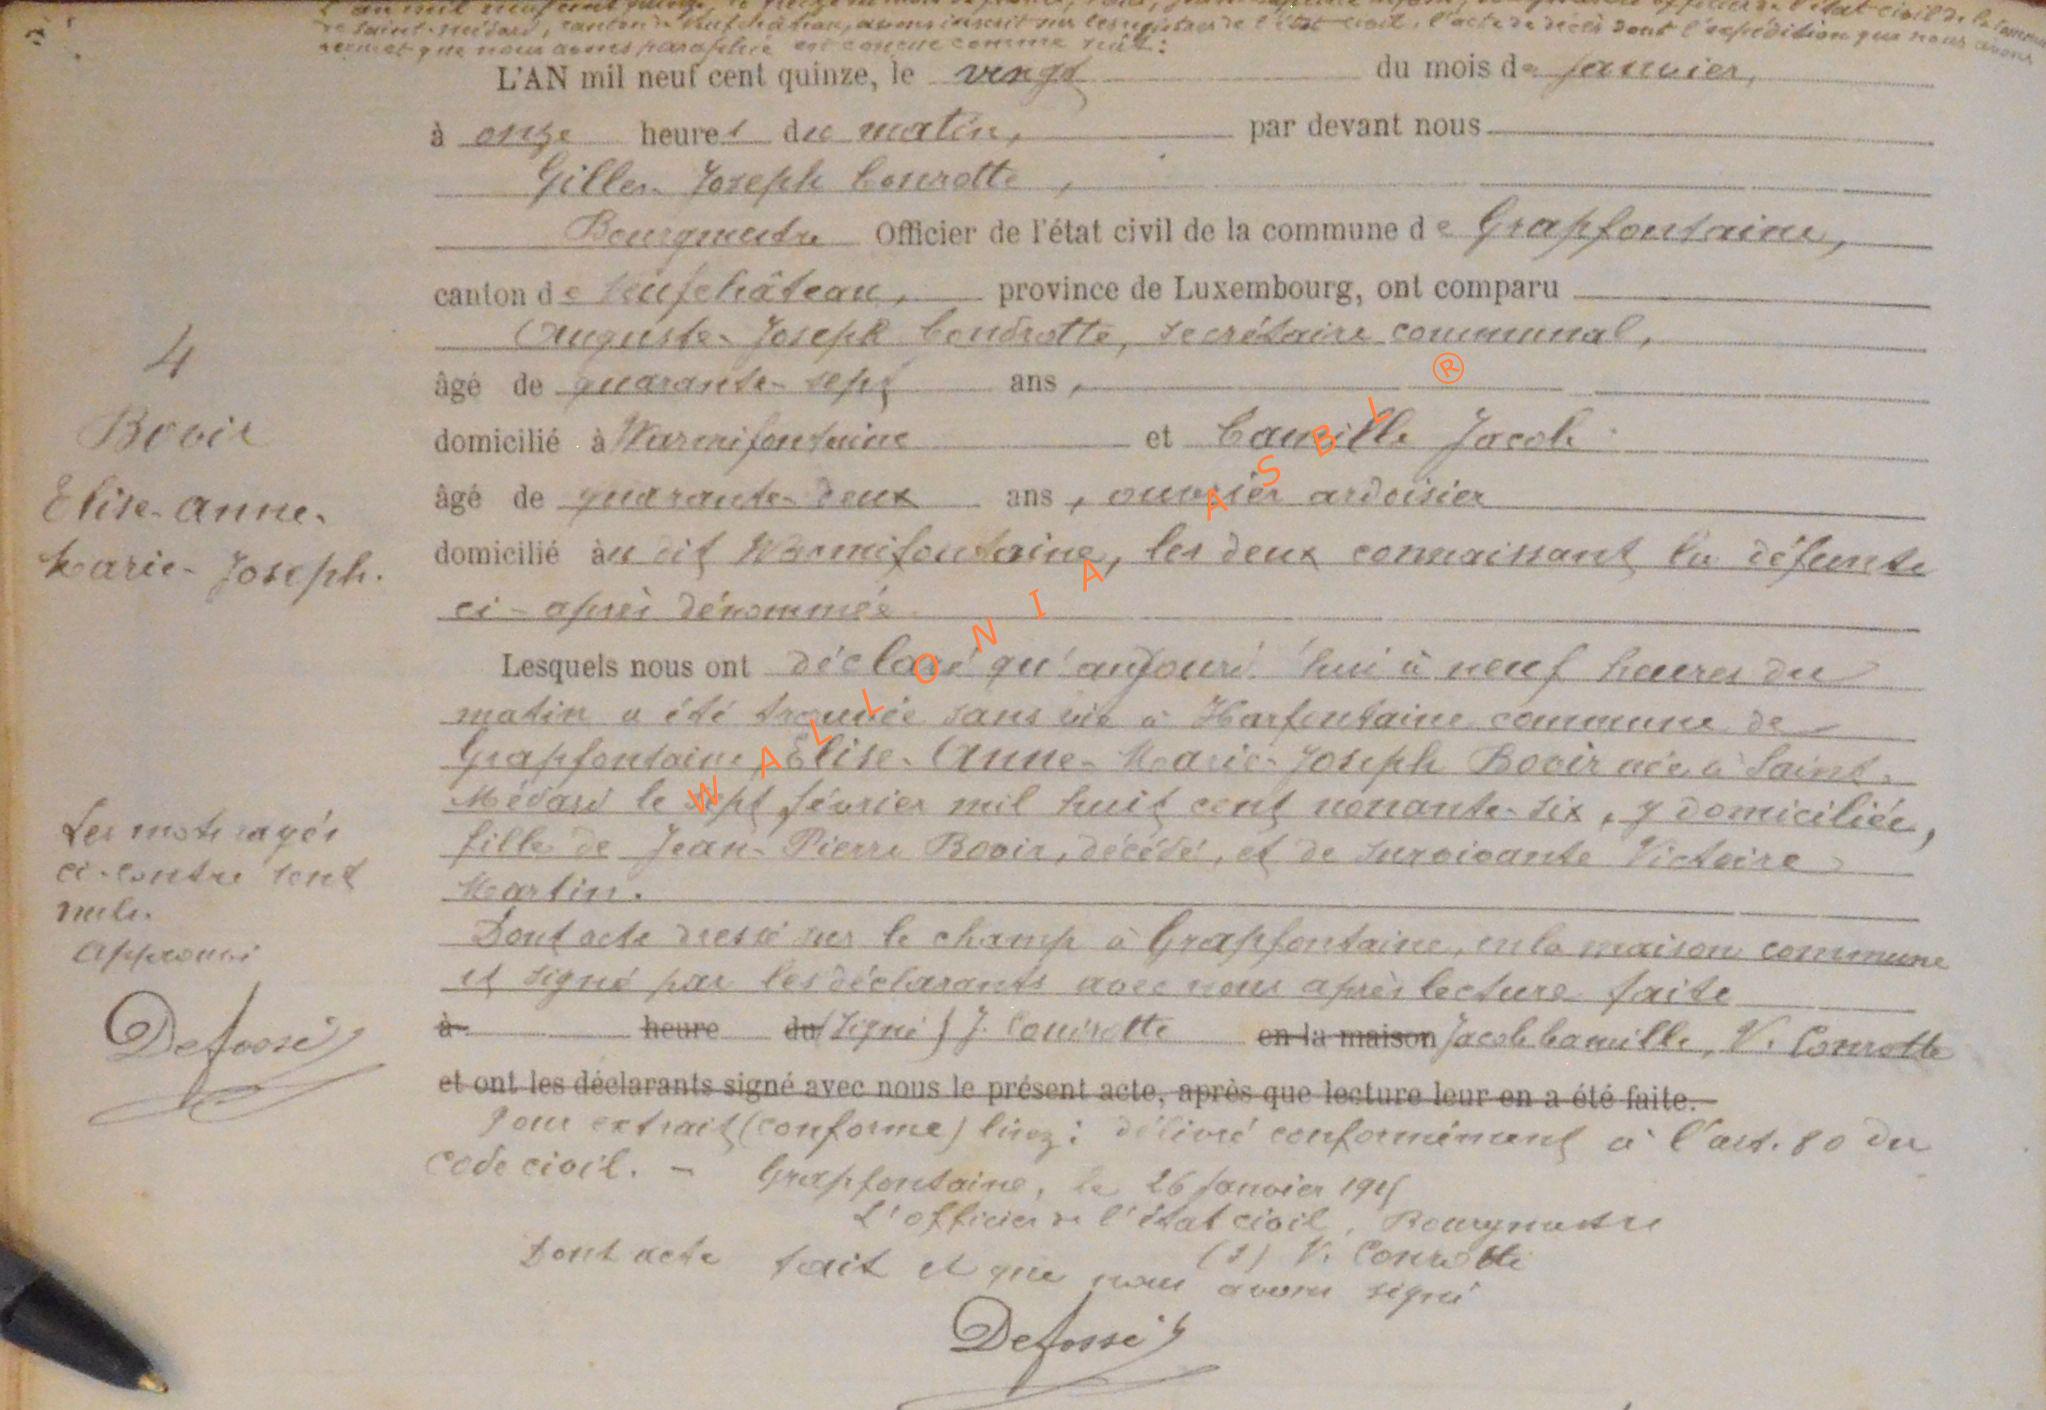 de Saint-Médard, canton de Neufchâteau, avons inscrit sur les registres de l'état civil, l'acte de décès dont l'expédition que nous avons
que nous avons paraphée est conçue comme suit :
L'AN mil neuf cent quinze, le vingt du mois de janvier,
à onze heures du matin, par devant nous
Gilles-Joseph Conrotte,
Bourgmestre Officier de l'état civil de la commune de Grapfontaine,
canton de Neufchâteau, province de Luxembourg, ont comparu
4
Auguste-Joseph Condrotte, secrétaire communal,
âgé de quarante-sept ans,
Bovir
domicilié à Warmifontaine et Camille Jacob
Elise-Anne-
âgé de quarante-deux ans, ouvrier ardoisier
Marie-Joseph.
domicilié àu dit Warmifontaine, les deux connaissant la défunte
ci-après dénommée
Lesquels nous ont déclaré qu'aujourd'hui à neuf heures du
matin a été trouvée sans vie à Harfontaine commune de
Grapfontaine, Elise-Anne-Marie-Joseph Bovir née à Saint-
Médard le sept février mil huit cent nonante-six, y domiciliée,
Les mots rayés
ci-contre sont
nuls.
Approuvé
Defossé
fille de Jean-Pierre Bovir, décédé, et de survivante Victoire
Martin.
Dont acte dressé sur le champ à Grapfontaine, en la maison commune
et signé par les déclarants avec nous après lecture faite
à heure du (Signé) J. Conrotte en la maison Jacob Camille, V. Conrotte
et ont les déclarants signé avec nous le présent acte, après que lecture leur en a été faite.
Pour extrait (conforme) lisez : délivré conformément à l'art. 80 du
code civil. - Grapfontaine, le 26 janvier 1915
L'officier de l'état civil, Bourgmestre
(s) V. Conrotte
Dont acte fait et que nous avons signé
Defossé
WALLONIA ASBL ®